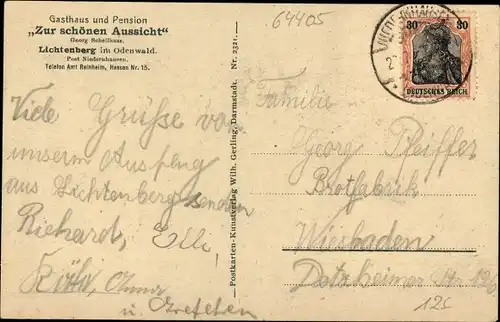 Gasthaus und Pension
„Zur schönen Aussicht“
Georg Schellhaas.
Lichtenberg im Odenwald.
Post Niedernhausen.
Telefon Amt Reinheim, Hessen Nr. 15.
64405
30 30
DEUTSCHES REICH
Viele Grüße von
unserem Ausflug
aus Lichtenberg senden
Richard, Elli,
Käthi, Anna
u. Gretchen
Postkarten-Kunstverlag Wilh. Gerling, Darmstadt. Nr. 2321.
Familie
Georg Pfeiffer
Brotfabrik
Wiesbaden
Dotzheimer Str. 126
125